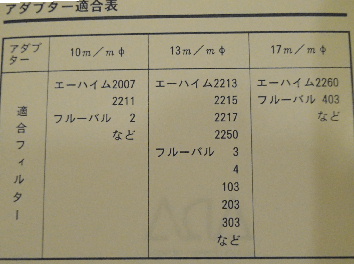 アダプター適合表
アダプター 10m/mφ 13m/mφ 17m/mφ
適合フィルター
エーハイム2007
2211
フルーバル 2
など
エーハイム2213
2215
2217
2250
フルーバル 3
4
103
203
303
など
エーハイム2260
フルーバル 403
など